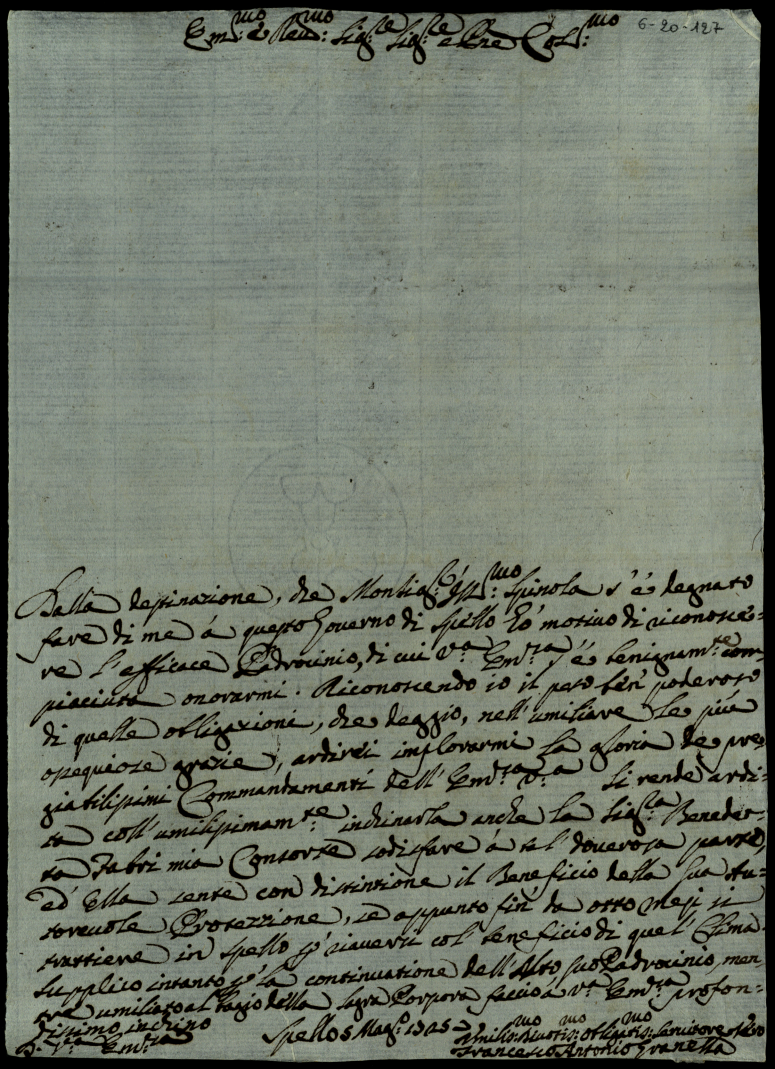 Em:mo e Rev:mo Sig:re Sig:re e Pre Col:mo
6-20-127
Dalla destinazione, che Monsig:r Ill:mo Spinola s'è degnato
fare di me à questo Governo di Spello hò motivo di riconosce=
re l'efficace Padrocinio, di cui V:a Em:za s'è benignam:te com=
piaciuta onorarmi. Riconoscendo io il peso ben poderoso
di quelle obligazioni, che deggio, nell'umiliare le più
ossequiose grazie, ardirei implorarmi la gloria de pre=
giatissimi Commandamenti dell'Em:za V:a Si rende ardi=
ta coll'umilissimam:te inchinarla anche la Sig:ra Benedet=
ta Fabri mia Consorte sodisfare à tal doverosa parte,
ed'Ella sente con distinzione il Beneficio della sua Au=
torevole Protezzione, se appunto fin da otto mesi si
trattiere in Spello p riaversi col beneficio di quel Clima
Supplico intanto p la continuatione dell'Alto suo Padrocinio, men=
tre umiliato al bagio della sagra Porpora faccio à V:a Em:za profon=
dissimo inchino
D. V:ra Em:za
Spello 5 Mag:o 1725
Umiliss:mo Divotiss:mo Obligatiss:mo Servitore
Francesco Antonio Granella